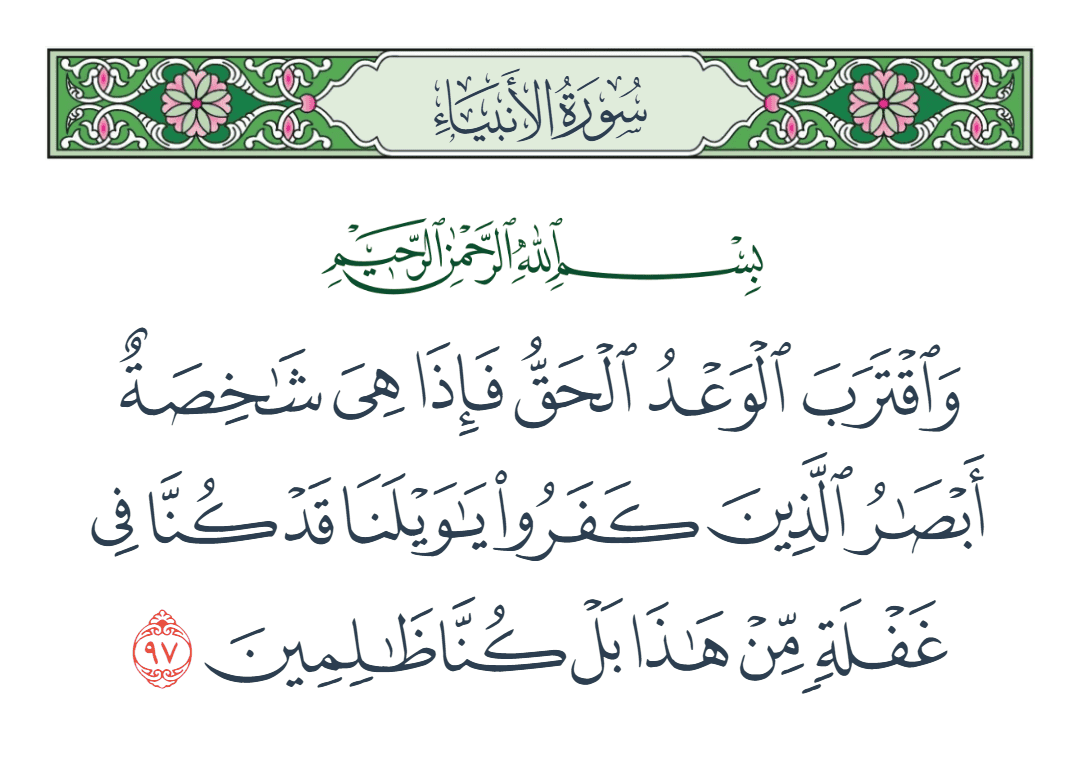 سُورَةُ الأَنبِيَاءِ
بِسْمِ ٱللَّهِ ٱلرَّحْمَٰنِ ٱلرَّحِيمِ
وَٱقْتَرَبَ ٱلْوَعْدُ ٱلْحَقُّ فَإِذَا هِىَ شَٰخِصَةٌ
أَبْصَٰرُ ٱلَّذِينَ كَفَرُوا۟ يَٰوَيْلَنَا قَدْ كُنَّا فِى
غَفْلَةٍ مِّنْ هَٰذَا بَلْ كُنَّا ظَٰلِمِينَ ٩٧